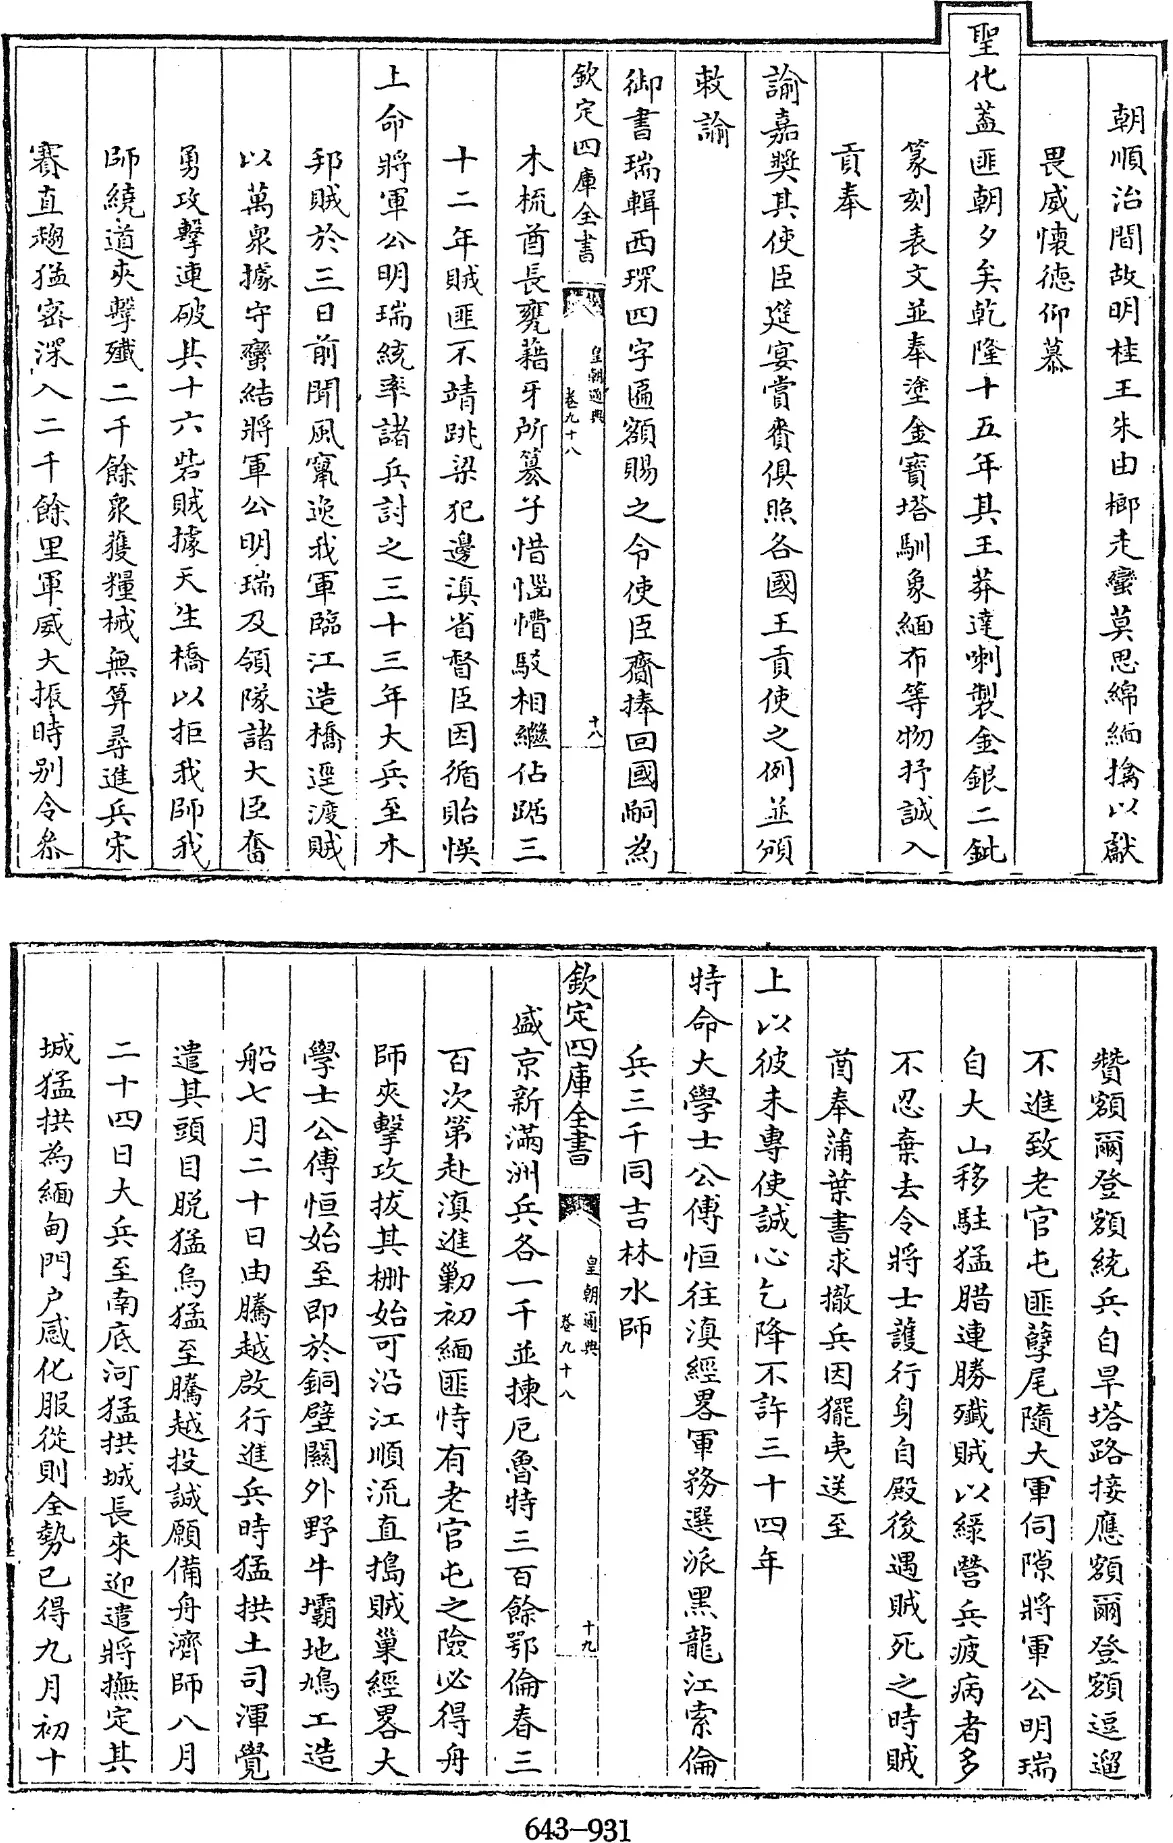 朝順治間故明桂王朱由榔走蠻莫思綿緬擒以獻
畏威懷德仰慕
聖化蓋匪朝夕矣乾隆十五年其王莽達喇製金銀二鈚
篆刻表文並奉塗金寶塔馴象緬布等物抒誠入
貢奉
諭嘉奬其使臣筵宴賞賚俱照各國王貢使之例並頒
敕諭
御書瑞輯西琛四字匾額賜之令使臣齎捧回國嗣為
欽定四庫全書
皇朝通典
卷九十八
十八
木梳酋長甕藉牙所簒子惜惱懵駁相繼佔踞三
十二年賊匪不靖跳梁犯邊滇省督臣因循貽悞
上命將軍公明瑞統率諸兵討之三十三年大兵至木
邦賊於三日前聞風竄逸我軍臨江造橋逕渡賊
以萬衆據守蠻結將軍公明瑞及領隊諸大臣奮
勇攻擊連破其十六砦賊據天生橋以拒我師我
師繞道夾擊殲二千餘衆獲糧械無算尋進兵宋
賽直趨猛密深入二千餘里軍威大振時别令叅
贊額爾登額統兵自旱塔路接應額爾登額逗遛
不進致老官屯匪孽尾隨大軍伺隙將軍公明瑞
自大山移駐猛腊連勝殲賊以緑營兵疲病者多
不忍棄去令將士護行身自殿後遇賊死之時賊
酋奉蒲葉書求撤兵因擺夷送至
上以彼未專使誠心乞降不許三十四年
特命大學士公傅恒往滇經畧軍務選派黑龍江索倫
兵三千同吉林水師
欽定四庫全書
皇朝通典
卷九十八
十九
盛京新滿洲兵各一千並揀厄魯特三百餘鄂倫春三
百次第赴滇進勦初緬匪恃有老官屯之險必得舟
師夾擊攻拔其栅始可沿江順流直搗賊巢經畧大
學士公傅恒始至即於銅壁關外野牛壩地鳩工造
船七月二十日由騰越啟行進兵時猛拱土司渾覺
遣其頭目脱猛烏猛至騰越投誠願備舟濟師八月
二十四日大兵至南底河猛拱城長來迎遣將撫定其
城猛拱為緬甸門户感化服從則全勢已得九月初十
643-931